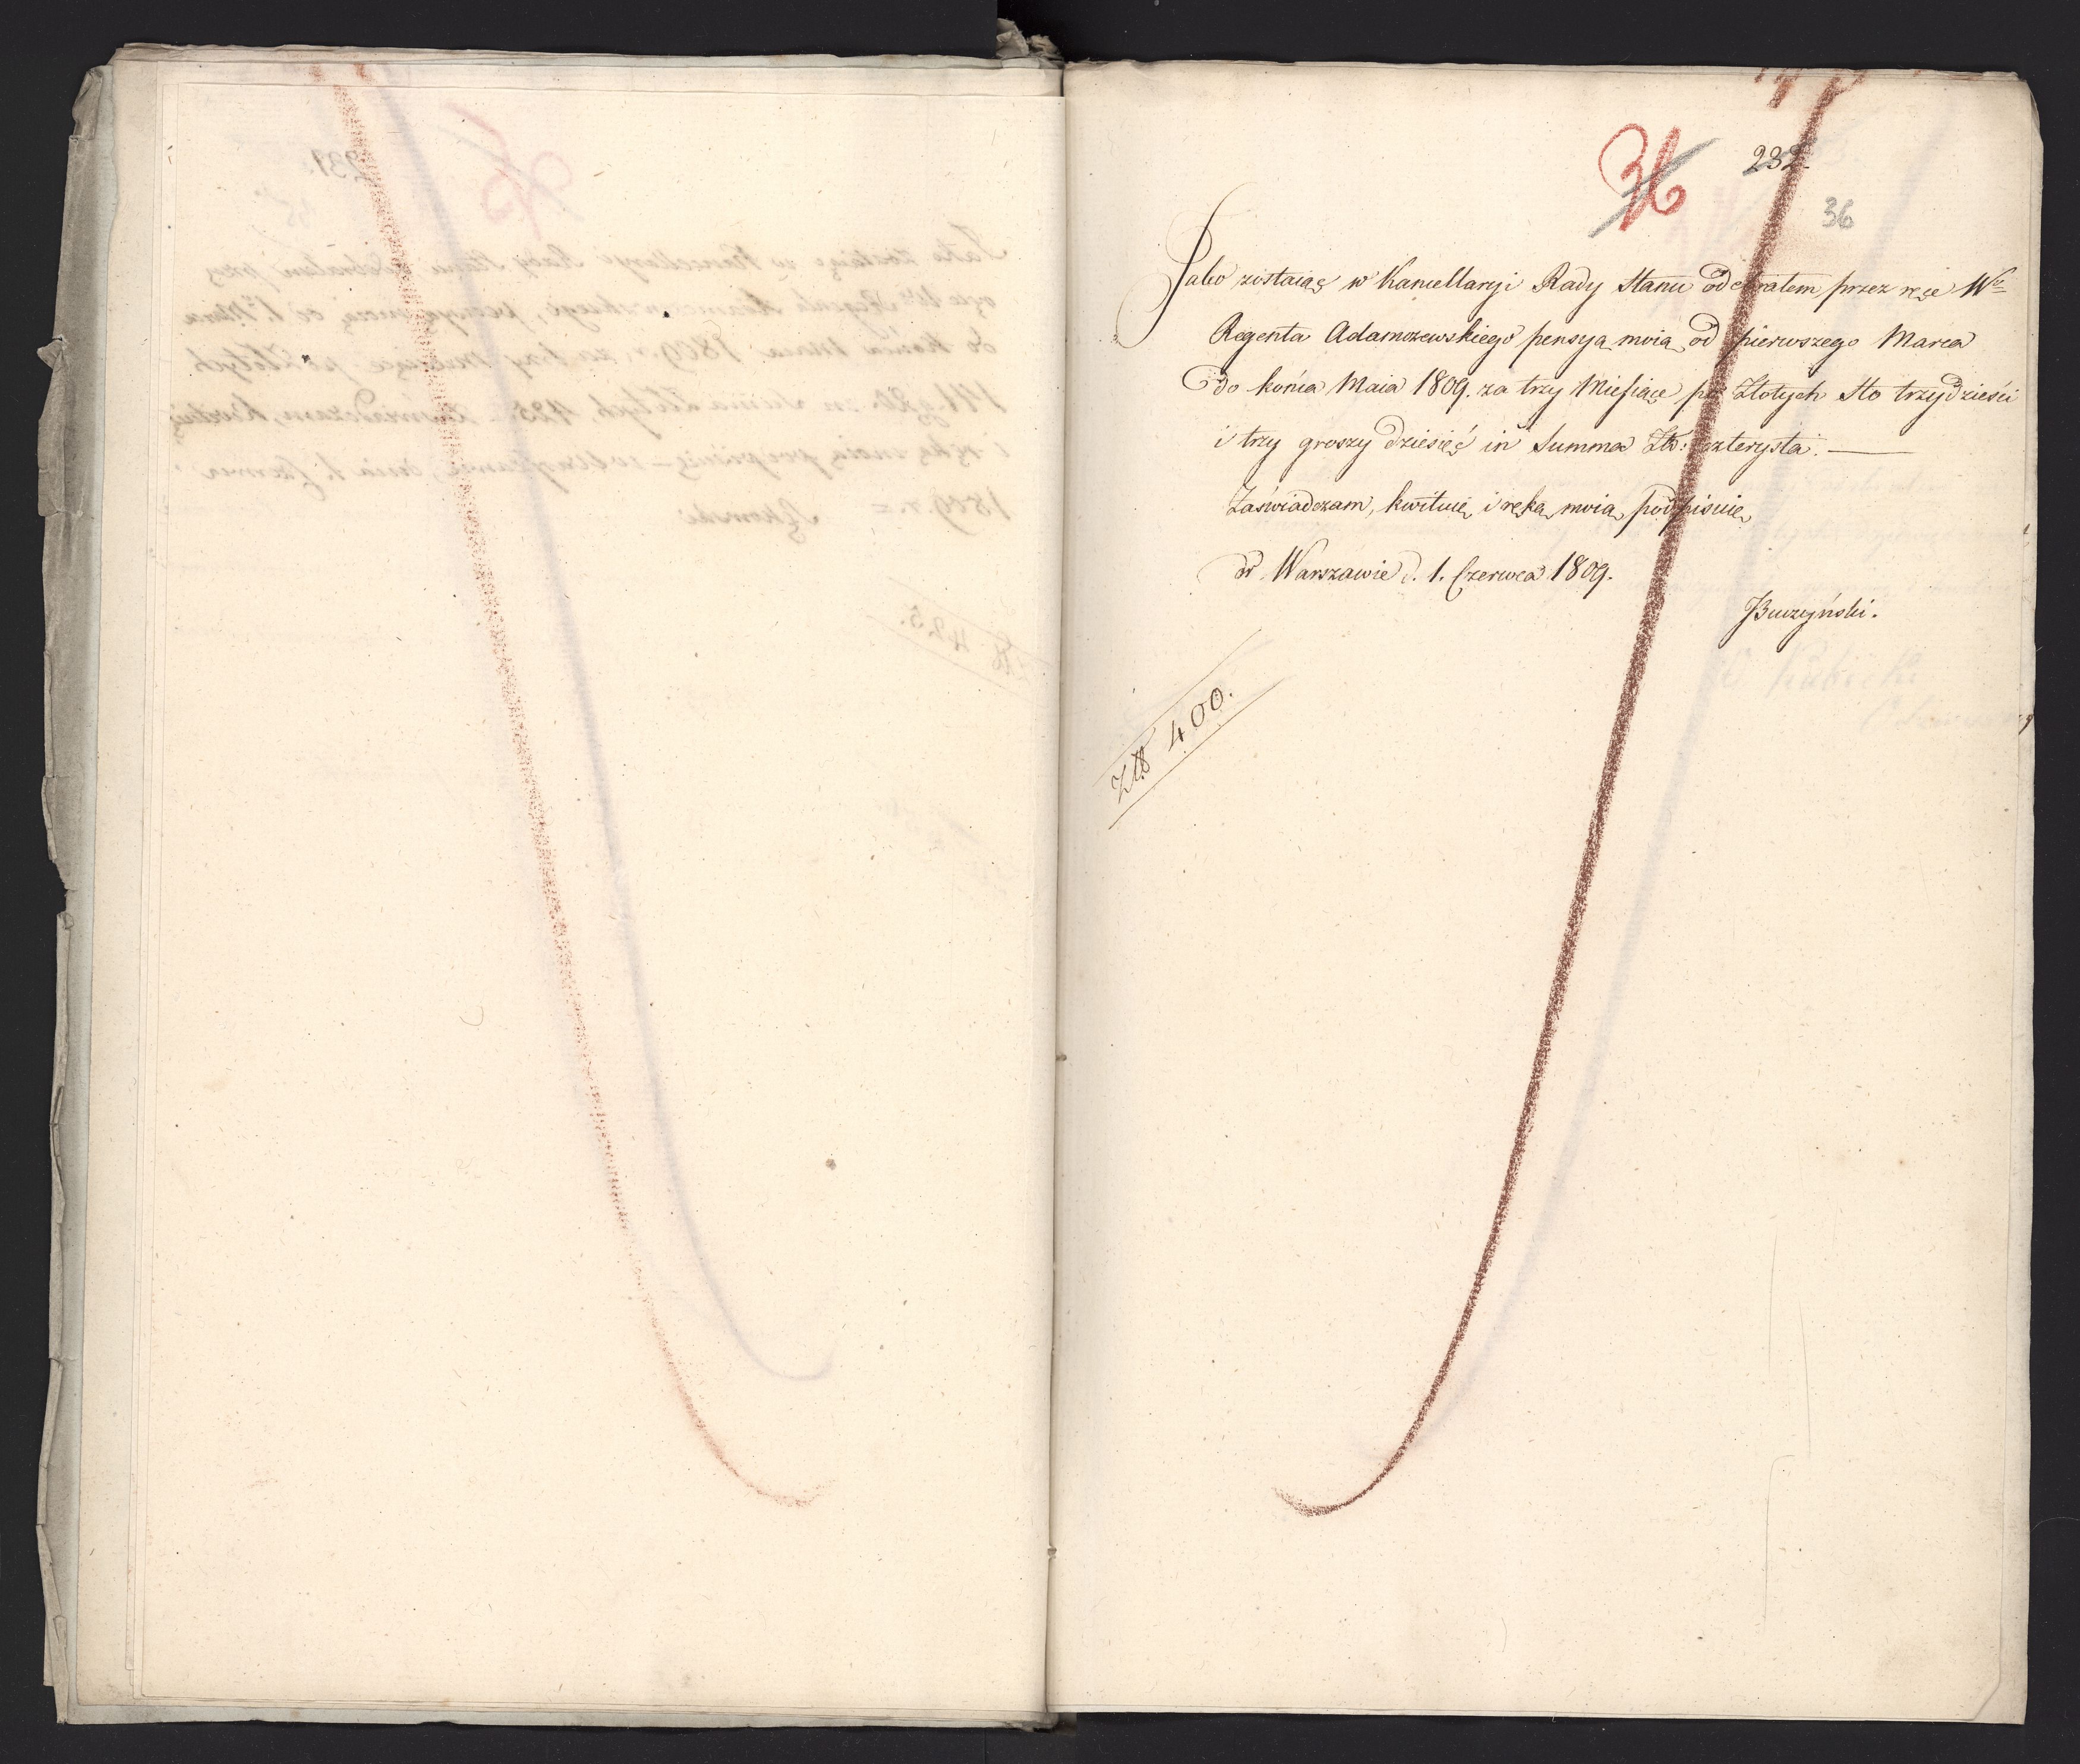 36
232.
36
Jako zostaiąc w Kancellaryi Rady Stanu odebrałem przez ręce Wo
Regenta Adamczewskiego pensyą moią od pierwszego Marca
do końca Maia 1809. za trzy Miesiące po Złotych Sto trzydzieści
i trzy groszy dziesięć in Summa Złt: czterysta. —
Zaświadczam, kwituię i ręką moią podpisuię
w Warszawie d. 1. Czerwca 1809.
Buczyński.
Złt 400.